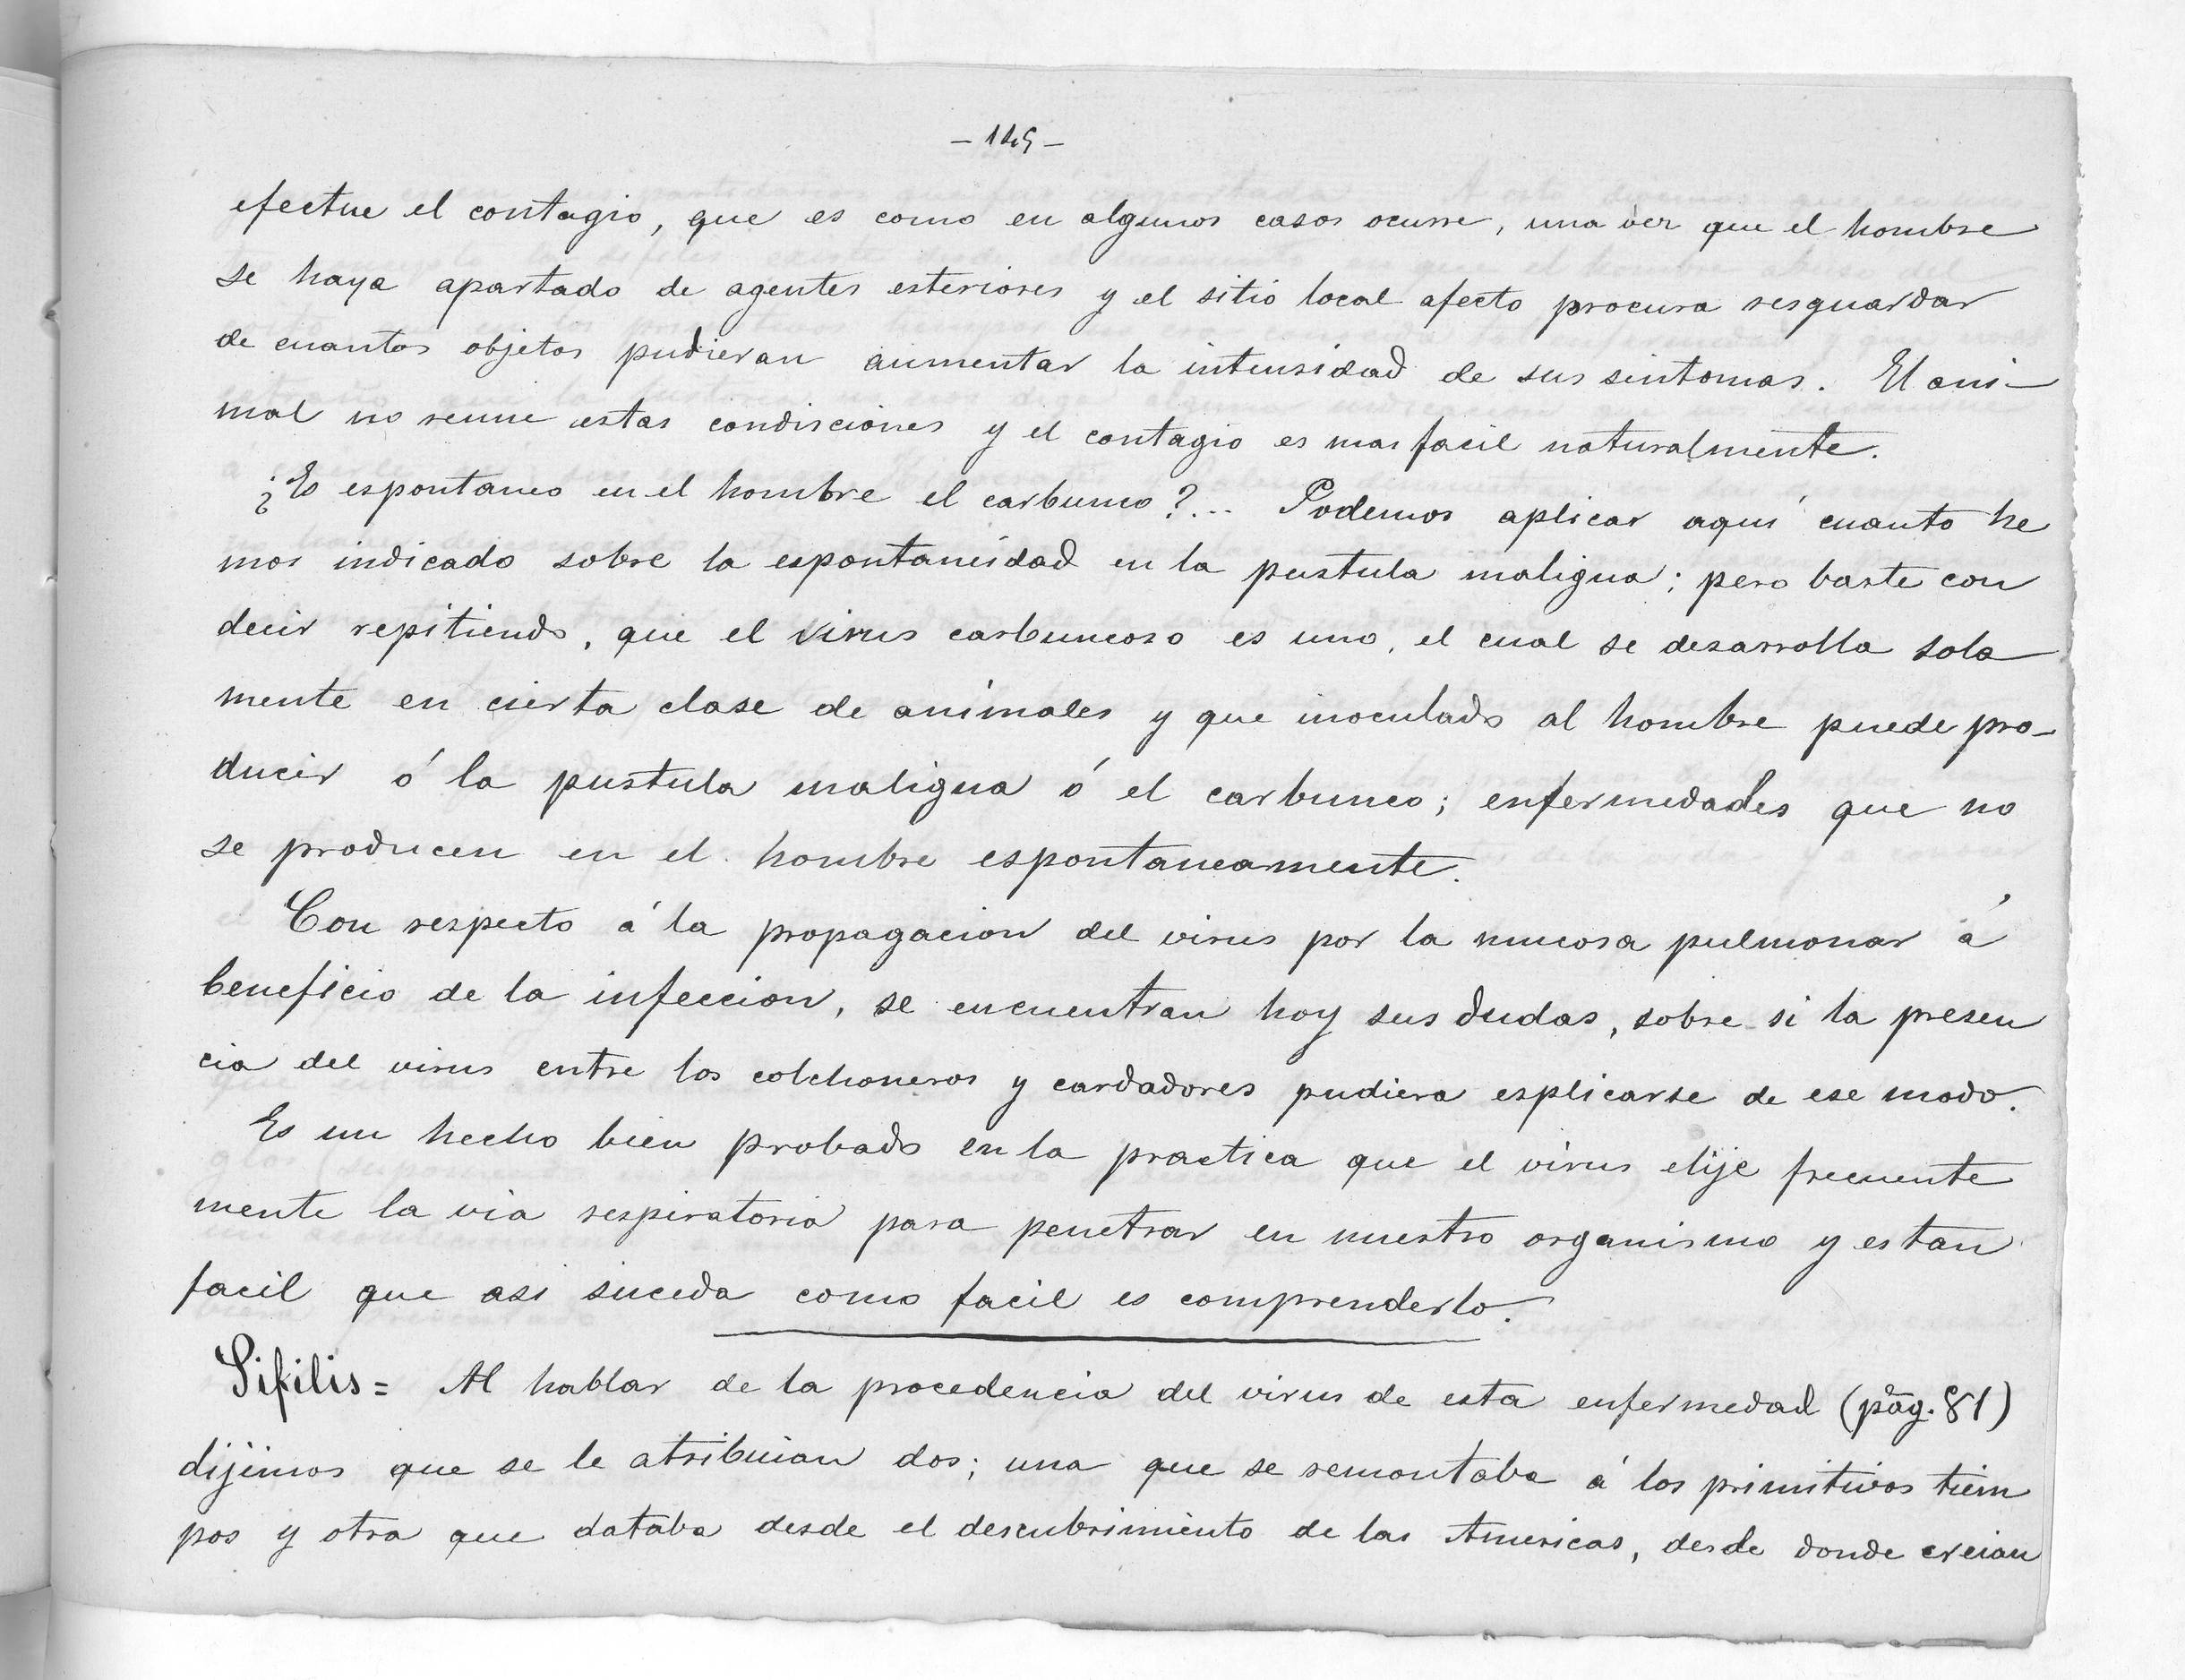 - 145 -
efectue el contagio, que es como en algunos casos ocurre, una vez que el hombre
se haya apartado de agentes esteriores y el sitio local afecto procura resguardar
de cuantos objetos pudieran aumentar la intensidad de sus sintomas. El ani-
mal no reune estas condisciones y el contagio es mas facil naturalmente.
¿Es espontaneo en el hombre el carbunco?... Podemos aplicar aquí cuanto he
mos indicado sobre la espontaneidad en la pustula maligna; pero baste con
decir repitiendo, que el virus carbuncoso es uno, el cual se desarrolla sola
mente en cierta clase de animales y que inoculado al hombre puede pro-
ducir ó la pustula maligna ó el carbunco; enfermedades que no
se producen en el hombre espontaneamente.
Con respecto á la propagacion del virus por la mucosa pulmonar á
beneficio de la infeccion, se encuentran hoy sus dudas, sobre si la presen
cia del virus entre los colchoneros y cardadores pudiera esplicarse de ese modo.
Es un hecho bien probado en la practica que el virus elije frecuente
mente la via respiratoria para penetrar en nuestro organismo y es tan
facil que asi suceda como facil es comprenderlo.
Sifilis = Al hablar de la procedencia del virus de esta enfermedad (pág. 81)
dijimos que se le atribuian dos; una que se remontaba á los primitivos tiem
pos y otra que databa desde el descubrimiento de las Americas, desde donde creian